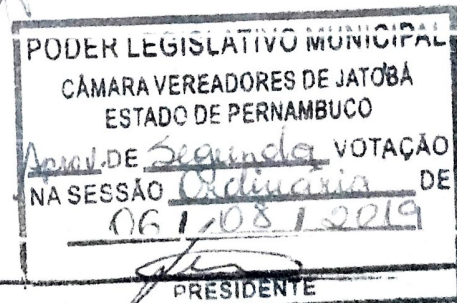 PODER LEGISLATIVO MUNICIPAL
CÂMARA VEREADORES DE JATOBÁ
ESTADO DE PERNAMBUCO
Aprov. DE Segunda VOTAÇÃO
NA SESSÃO Ordinária DE
06 / 08 / 2019
PRESIDENTE